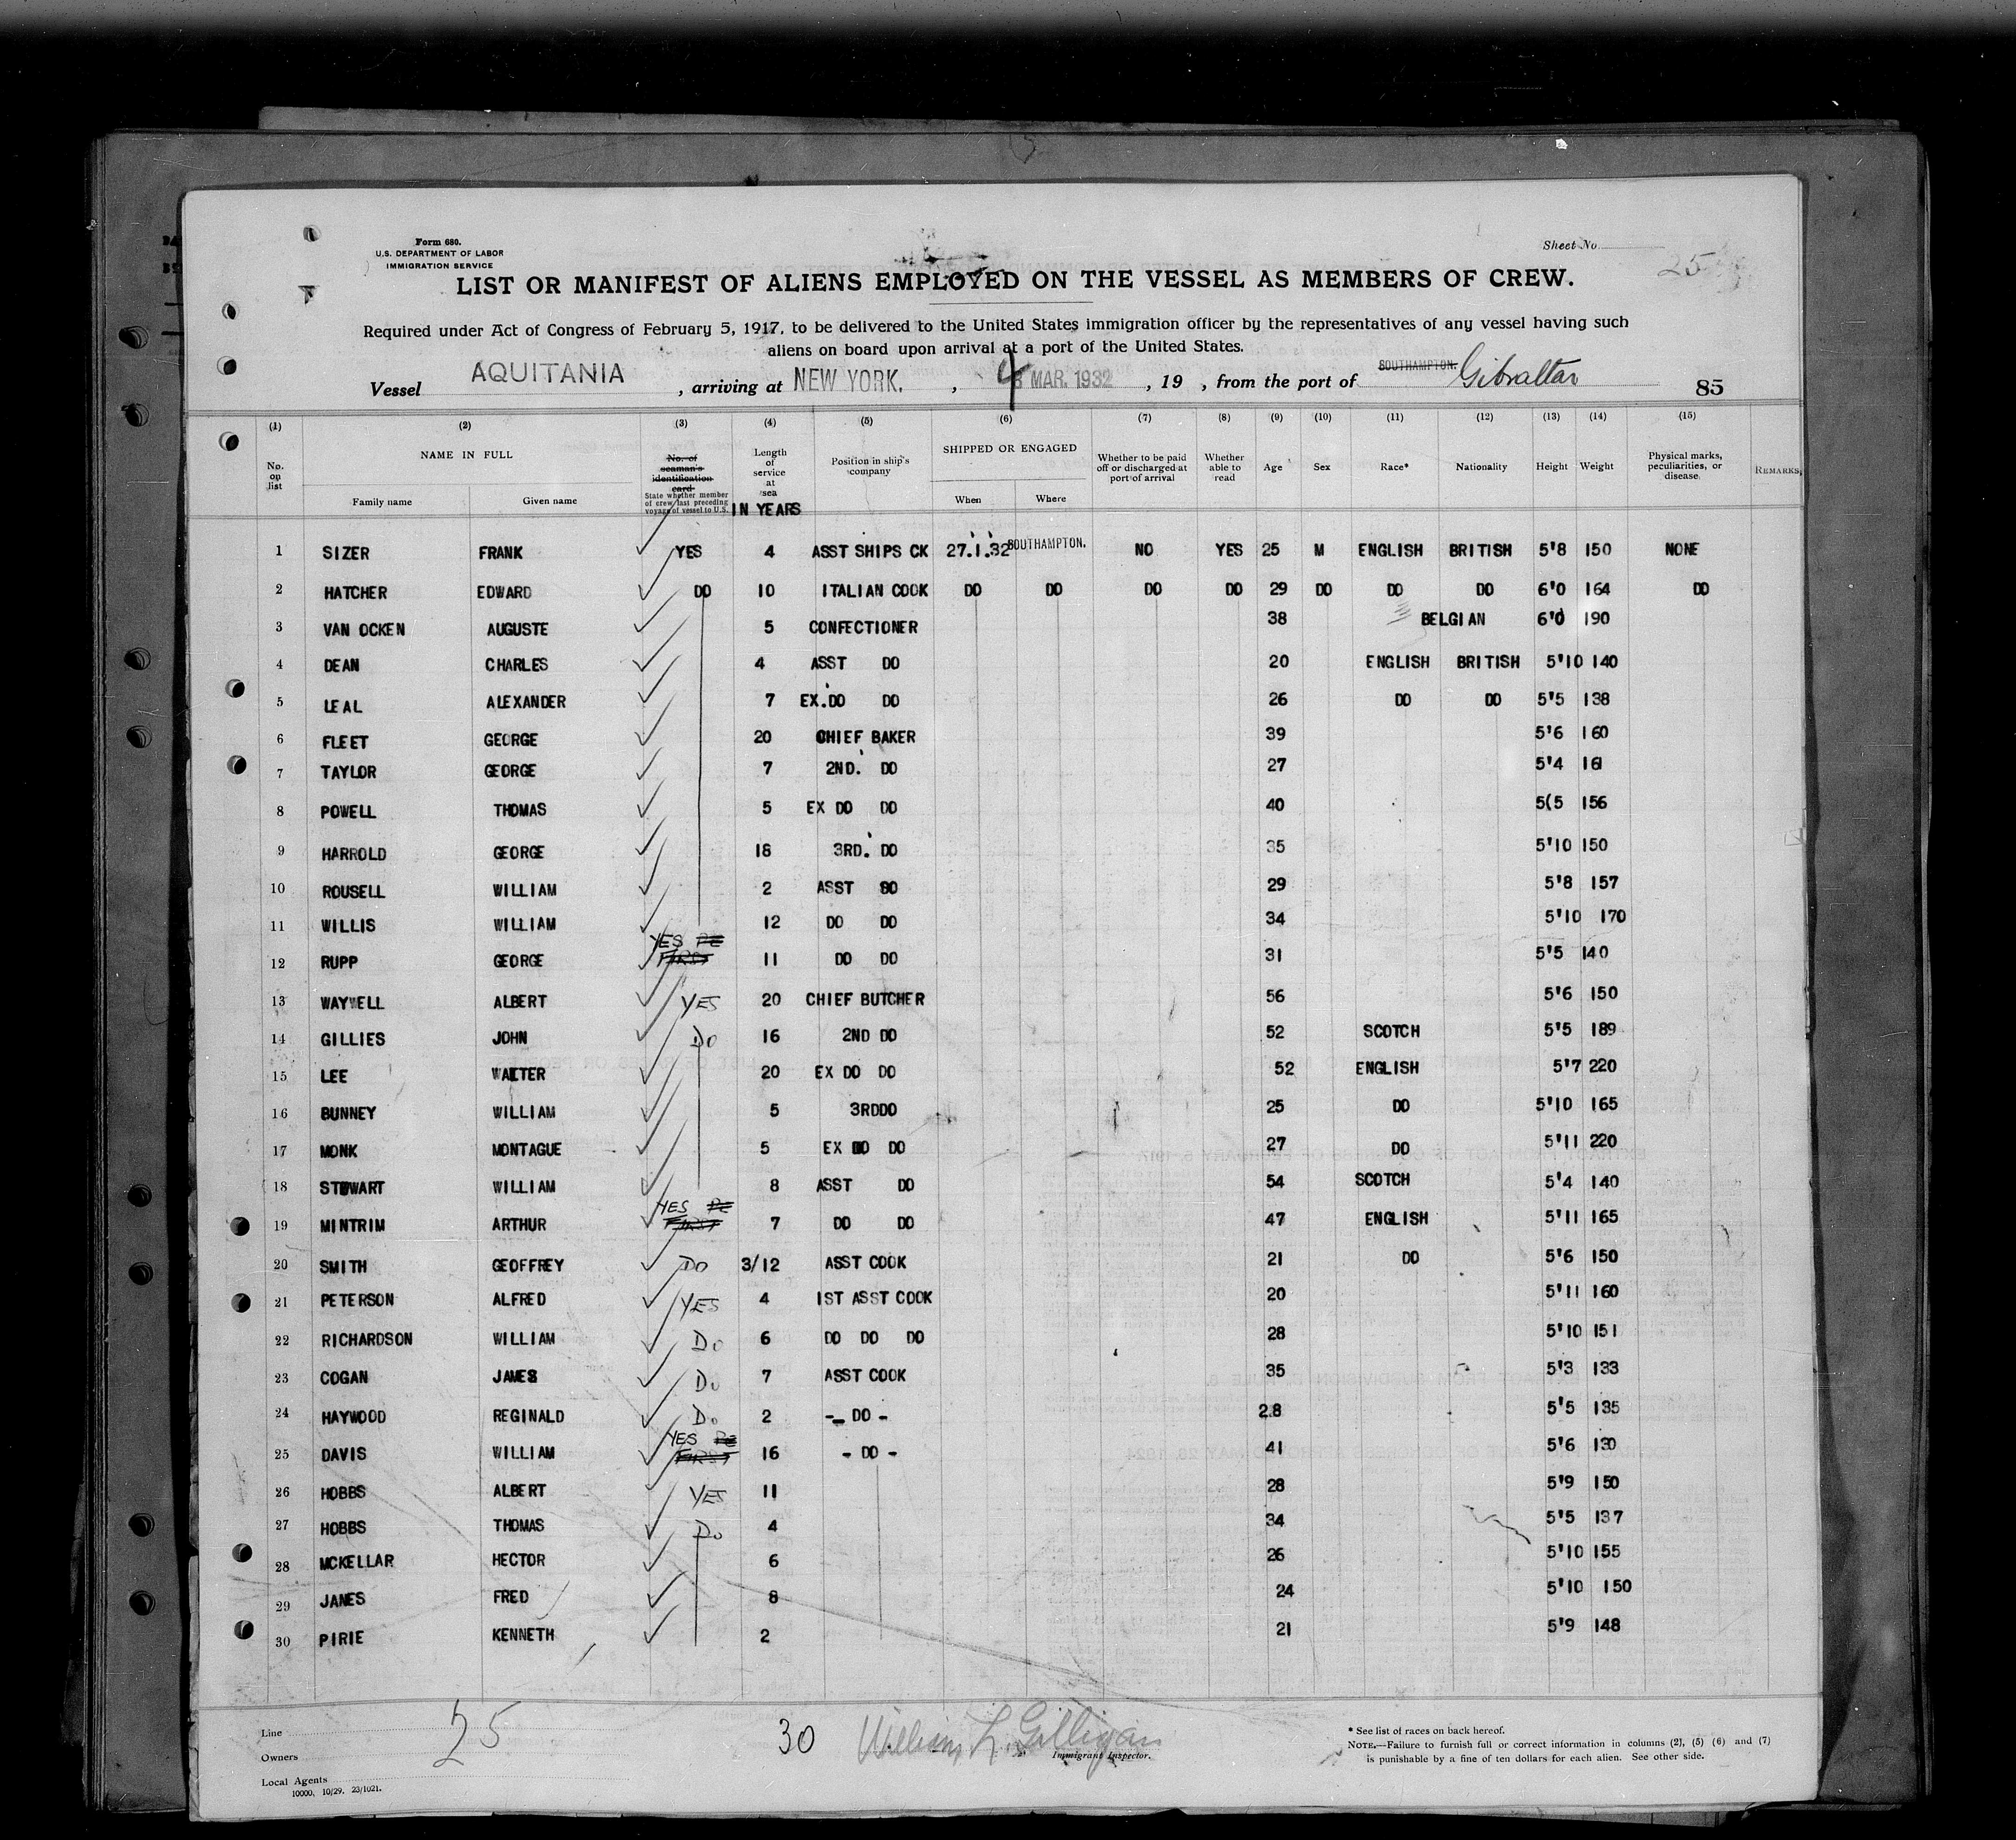 Form 680.
U.S. DEPARTMENT OF LABOR
IMMIGRATION SERVICE
Sheet No. 25
LIST OR MANIFEST OF ALIENS EMPLOYED ON THE VESSEL AS MEMBERS OF CREW.
Required under Act of Congress of February 5, 1917, to be delivered to the United States immigration officer by the representatives of any vessel having such
aliens on board upon arrival at a port of the United States.
Vessel AQUITANIA, arriving at NEW YORK., 4 MAR. 1932, 19 , from the port of SOUTHAMPTON. Gibraltar 85
(1) (2) (3) (4) (5) (6) (7) (8) (9) (10) (11) (12) (13) (14) (15)
No. on list NAME IN FULL Family name Given name No. of seaman's identification card State whether member of crew last preceding voyage of vessel to U.S. Length of service at sea IN YEARS Position in ship's company SHIPPED OR ENGAGED When Where Whether to be paid off or discharged at port of arrival Whether able to read Age Sex Race* Nationality Height Weight Physical marks, peculiarities, or disease REMARKS,
1 SIZER FRANK YES 4 ASST SHIPS CK 27.1.32 SOUTHAMPTON. NO YES 25 M ENGLISH BRITISH 5'8 150 NONE
2 HATCHER EDWARD DO 10 ITALIAN COOK DO DO DO DO 29 DO DO DO 6'0 164 DO
3 VAN OCKEN AUGUSTE 5 CONFECTIONER 38 BELGIAN 6'0 190
4 DEAN CHARLES 4 ASST DO 20 ENGLISH BRITISH 5'10 140
5 LEAL ALEXANDER 7 EX.DO DO 26 DO DO 5'5 138
6 FLEET GEORGE 20 CHIEF BAKER 39 5'6 160
7 TAYLOR GEORGE 7 2ND. DO 27 5'4 161
8 POWELL THOMAS 5 EX DO DO 40 5(5 156
9 HARROLD GEORGE 18 3RD. DO 35 5'10 150
10 ROUSELL WILLIAM 2 ASST DO 29 5'8 157
11 WILLIS WILLIAM 12 DO DO 34 5'10 170
12 RUPP GEORGE YES RE FIRST 11 DO DO 31 5'5 140
13 WAYWELL ALBERT YES 20 CHIEF BUTCHER 56 5'6 150
14 GILLIES JOHN DO 16 2ND DO 52 SCOTCH 5'5 189
15 LEE WALTER 20 EX DO DO 52 ENGLISH 5'7 220
16 BUNNEY WILLIAM 5 3RDDO 25 DO 5'10 165
17 MONK MONTAGUE 5 EX DO DO 27 DO 5'11 220
18 STEWART WILLIAM 8 ASST DO 54 SCOTCH 5'4 140
19 MINTRIM ARTHUR YES RE FIRST 7 DO DO 47 ENGLISH 5'11 165
20 SMITH GEOFFREY DO 3/12 ASST COOK 21 DO 5'6 150
21 PETERSON ALFRED YES 4 1ST ASST COOK 20 5'11 160
22 RICHARDSON WILLIAM Do 6 DO DO DO 28 5'10 151
23 COGAN JAMES Do 7 ASST COOK 35 5'3 133
24 HAYWOOD REGINALD Do 2 -- DO - 28 5'5 135
25 DAVIS WILLIAM YES RE FIRST 16 - DO - 41 5'6 130
26 HOBBS ALBERT YES 11 28 5'9 150
27 HOBBS THOMAS Do 4 34 5'5 137
28 MCKELLAR HECTOR 6 26 5'10 155
29 JANES FRED 8 24 5'10 150
30 PIRIE KENNETH 2 21 5'9 148
Line 25
Owners
Local Agents
10000, 10/29. 23/1021.
30 William L. Gilligan
Immigrant Inspector.
* See list of races on back hereof.
NOTE.—Failure to furnish full or correct information in columns (2), (5) (6) and (7)
is punishable by a fine of ten dollars for each alien. See other side.